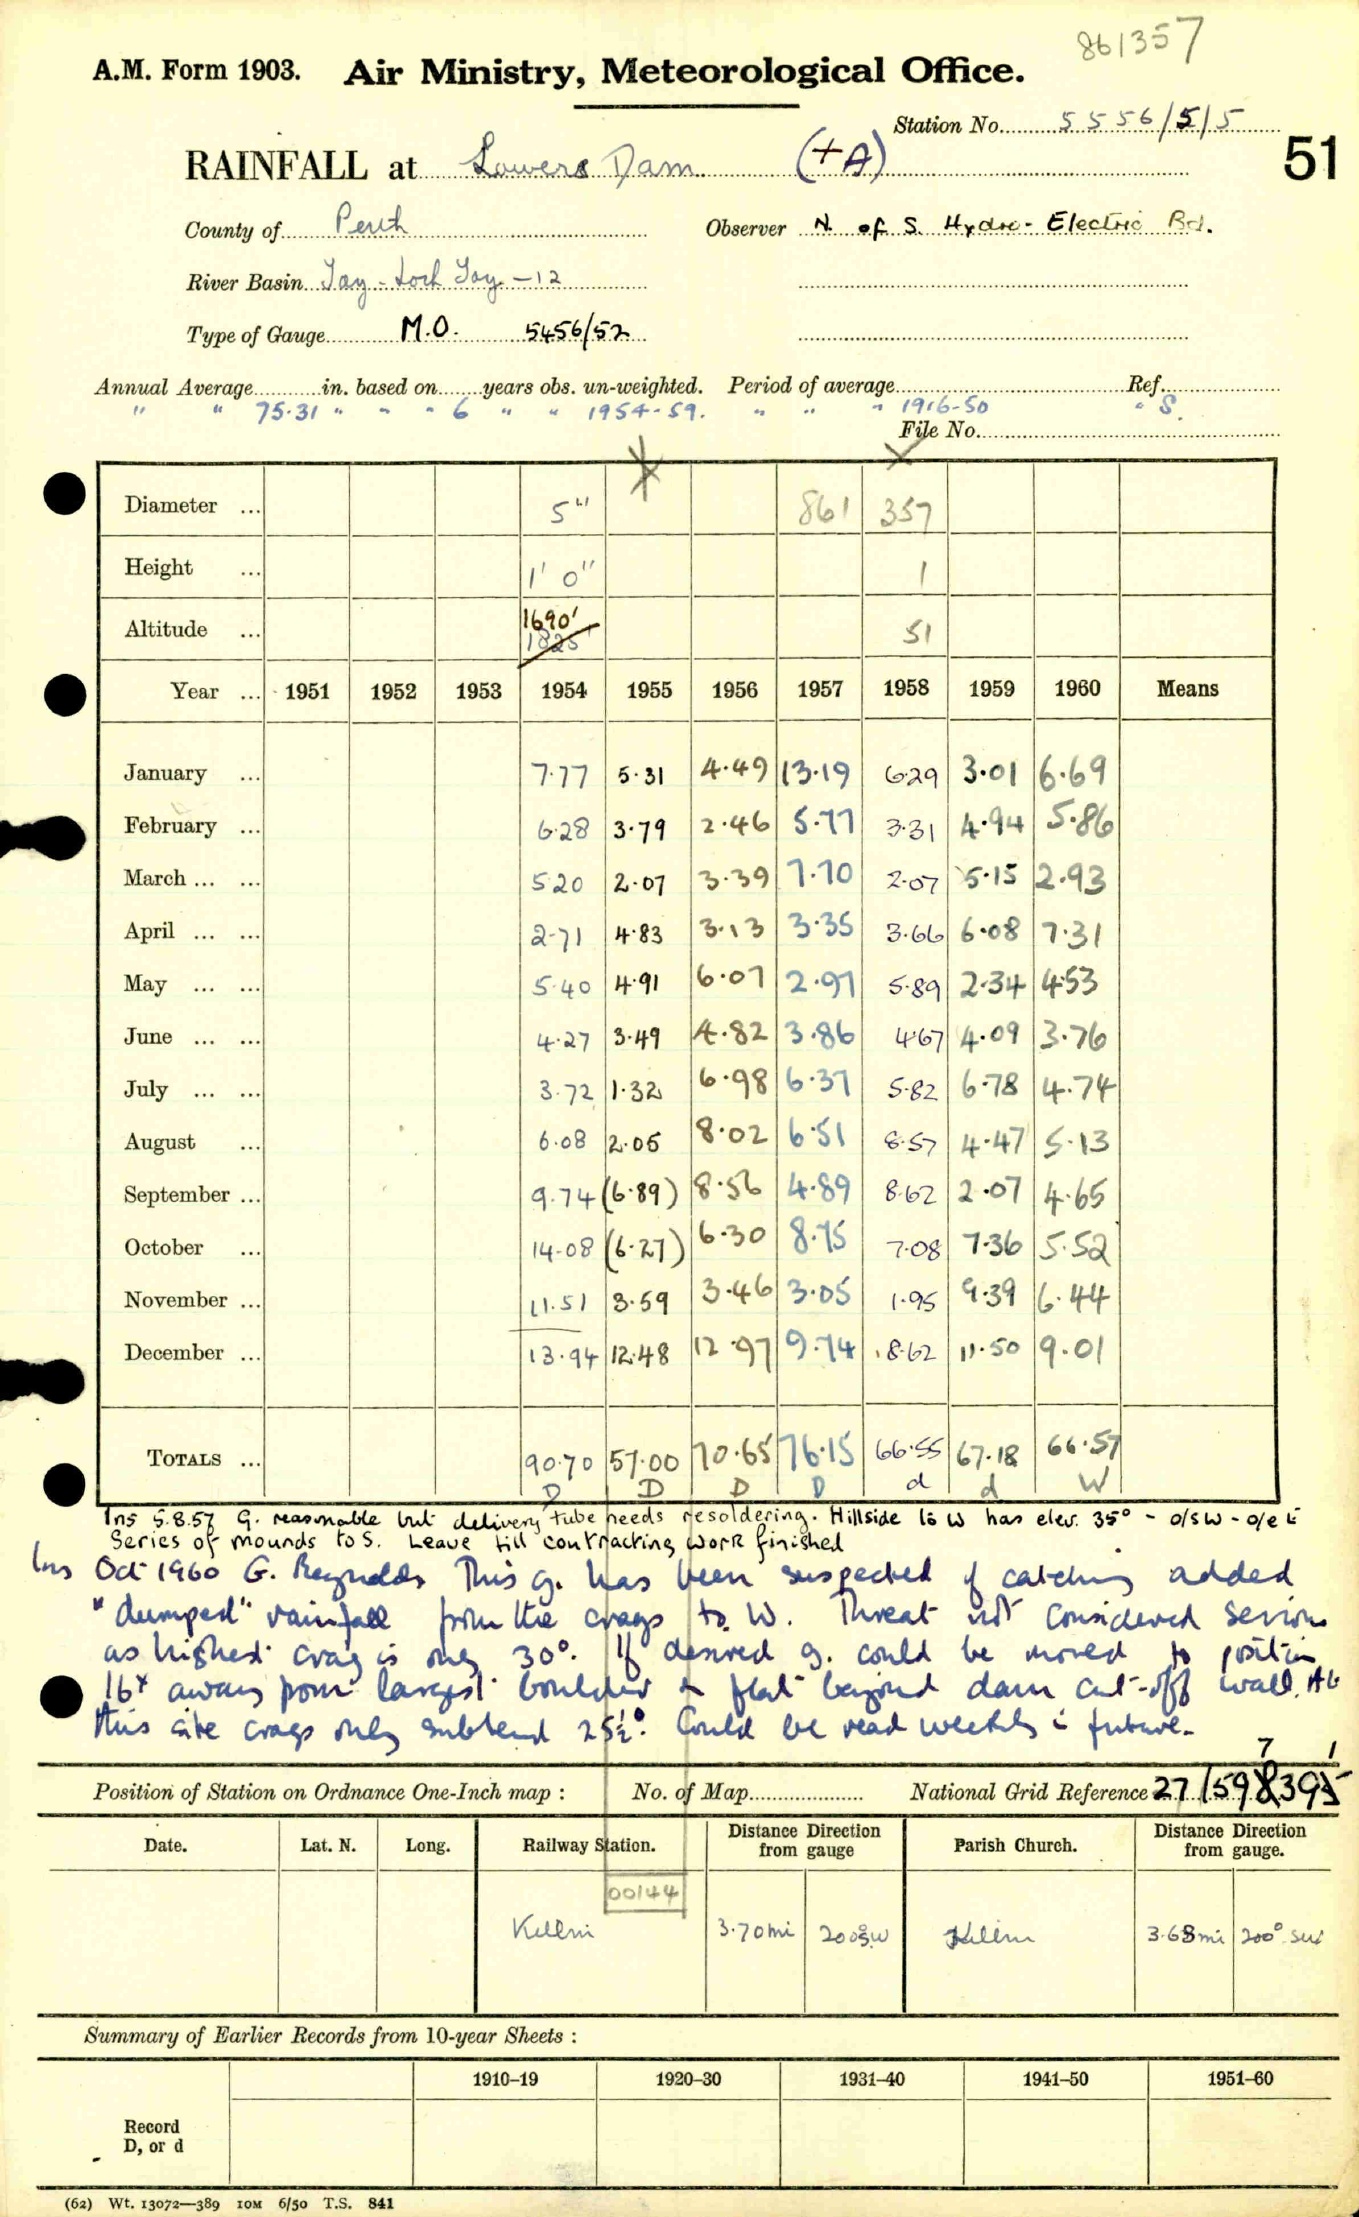 861357
A.M. Form 1903. Air Ministry, Meteorological Office.
Station No. 5556/5/5
51
RAINFALL at Lowers Dam (+A)
County of Perth Observer N. of S. Hydro-Electric Bd.
River Basin Tay - Loch Tay - 12
Type of Gauge M.O. 5456/52
Annual Average in. based on years obs. un-weighted. Period of average Ref.
" " 75.31 " " " 6 " " 1954-59. " " " 1916-50 " S.
File No.
Diameter ... 5" 861 357
Height ... 1' 0" 1
Altitude ... 1690' 1825' 51
Year ... 1951 1952 1953 1954 1955 1956 1957 1958 1959 1960 Means
January ... 7.77 5.31 4.49 13.19 6.29 3.01 6.69
February ... 6.28 3.79 2.46 5.77 3.31 4.94 5.86
March ... ... 5.20 2.07 3.39 7.70 2.07 5.15 2.93
April ... ... 2.71 4.83 3.13 3.35 3.66 6.08 7.31
May ... ... 5.40 4.91 6.07 2.97 5.89 2.34 4.53
June ... ... 4.27 3.49 4.82 3.86 4.67 4.09 3.76
July ... ... 3.72 1.32 6.98 6.37 5.82 6.78 4.74
August ... 6.08 2.05 8.02 6.51 8.57 4.47 5.13
September ... 9.74 (6.89) 8.56 4.89 8.62 2.07 4.65
October ... 14.08 (6.27) 6.30 8.75 7.08 7.36 5.52
November ... 11.51 3.59 3.46 3.05 1.95 9.39 6.44
December ... 13.94 12.48 12.97 9.74 8.62 11.50 9.01
TOTALS ... 90.70 57.00 70.65 76.15 66.55 67.18 66.57
D D D D d d W
Ins 5.8.57 G. reasonable but delivery tube needs resoldering. Hillside to W has elev. 35° - o/s W - o/e E
Series of mounds to S. Leave till contracting work finished
Ins Oct 1960 G. Reynolds This g. has been suspected of catching added
"dumped" rainfall from the crags to W. Threat not considered serious
as highest crag is only 30°. If desired g. could be moved to position
16x away from largest boulder on flat beyond dam cut-off wall. At
this site crags only subtend 25½°. Could be read weekly in future.
7 1
Position of Station on Ordnance One-Inch map : No. of Map National Grid Reference 27/598395
Date. Lat. N. Long. Railway Station. Distance from gauge Direction Parish Church. Distance from gauge. Direction
00144
Killin 3.70mi 200° SW Killin 3.68mi 200° SW
Summary of Earlier Records from 10-year Sheets :
1910–19 1920–30 1931–40 1941–50 1951–60
Record
D, or d
(62) Wt. 13072—389 10M 6/50 T.S. 841